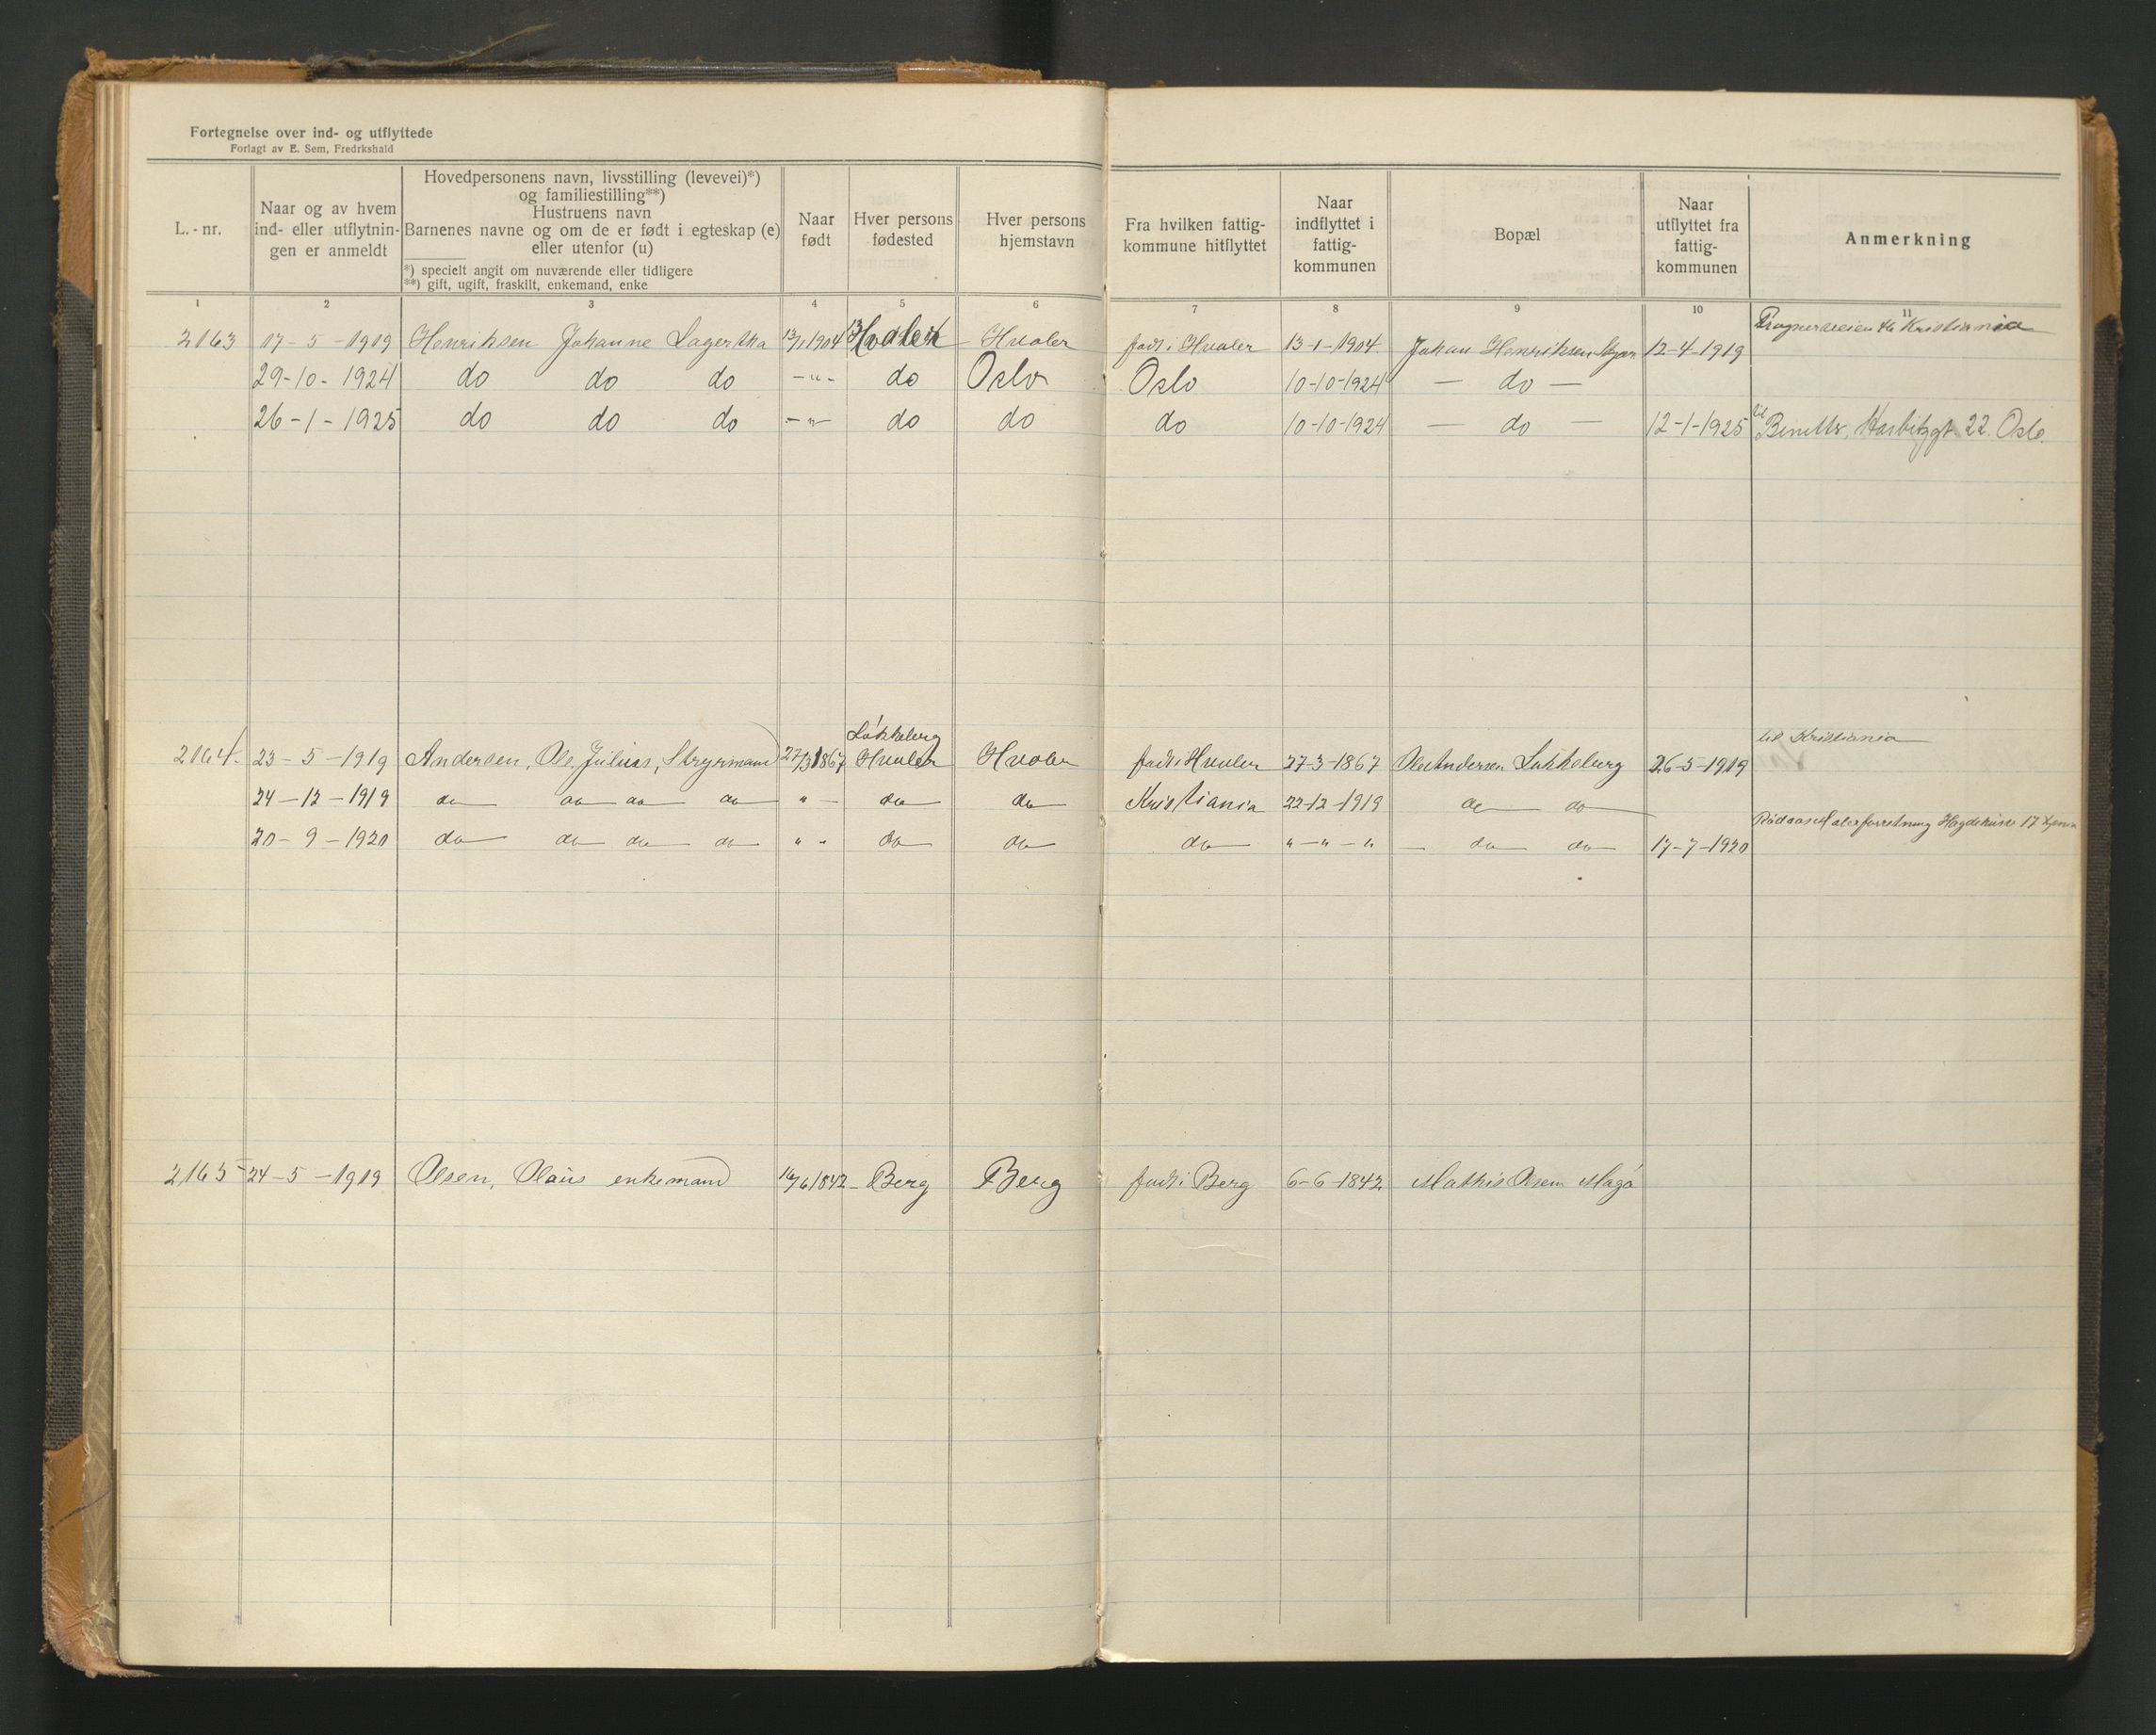 Fortegnelse over ind- og utflyttede
Forlagt av E. Sem, Fredrkshald
L. - nr.
Naar og av hvem
ind- eller utflytnin-
gen er anmeldt
Hovedpersonens navn, livsstilling (levevei)*)
og familiestilling**)
Hustruens navn
Barnenes navne og om de er født i egteskap (e)
eller utenfor (u)
*) specielt angit om nuværende eller tidligere
**) gift, ugift, fraskilt, enkemand, enke
Naar
født
Hver persons
fødested
Hver persons
hjemstavn
Fra hvilken fattig-
kommune hitflyttet
Naar
indflyttet i
fattig-
kommunen
Bopæl
Naar
utflyttet fra
fattig-
kommunen
Anmerkning
1 2 3 4 5 6 7 8 9 10 11
Kristiania
2163 17-5-1919 Henriksen Johanne Lagertha 13/1 1904 Hvaler Hvaler født i Hvaler 13-1-1904 Johan Henriksen 12-4-1919
29-10-1924 do do do -"- do Oslo Oslo 10-10-1924 — do —
26-1-1925 do do do -"- do do do 10-10-1924 — do — 12-1-1925 til 22. Oslo.
Løkkeberg til Kristiania
2164. 23-5-1919 Andersen, Ole Julius, Styrmand 27/3 1867 Hvaler Hvaler født i Hvaler 27-3-1867 Ole Andersen Løkkeberg 26-5-1919
24-12-1919 do do do do " - do do Kristiania 22-12-1919 do do
Malerforretning 17
20-9-1920 do do do do " - do do do "-"-" — do do 17-7-1920
2165 24-5-1919 Olsen, Olaus enkemand 16/6 1842 Berg Berg født i Berg 6-6-1842 Mathis Olsen Magø